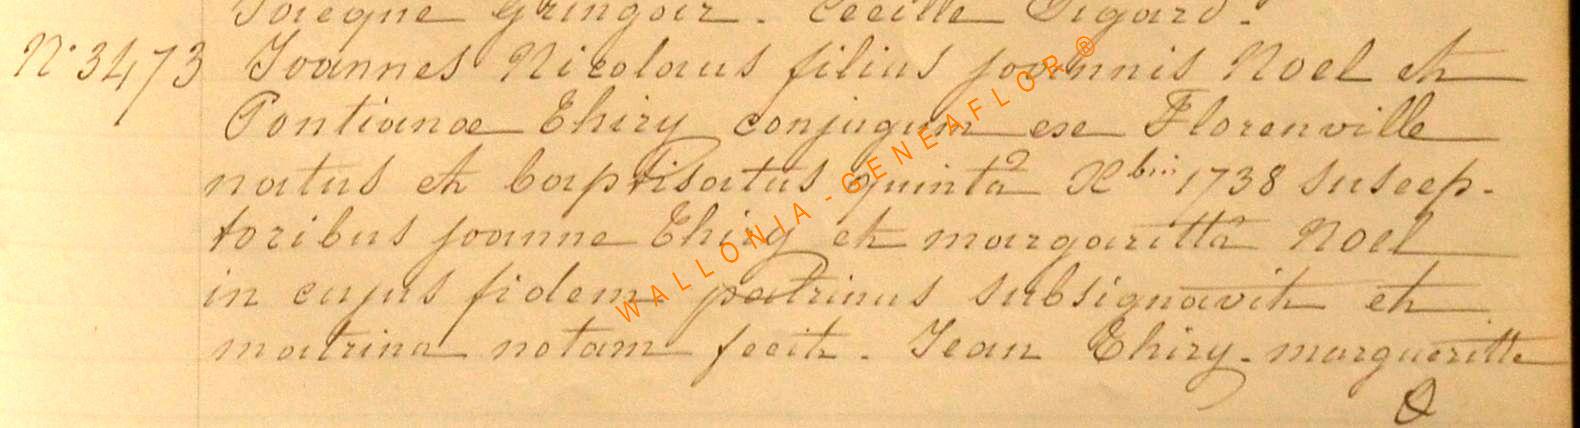 Jacque Gringoir. Cecille Gigard.
N° 3473 Joannes Nicolaus filius joannis Noel et
Pontianœ Thiry conjugum ex Florenville
natus et baptisatus quinta Xbris 1738 suscep-
toribus joanne Thiry et margaritta Noel
in cujus fidem patrinus subsignavit et
matrina notam fecit. Jean Thiry. margueritte
WALLONIA-GENEAFLOR®